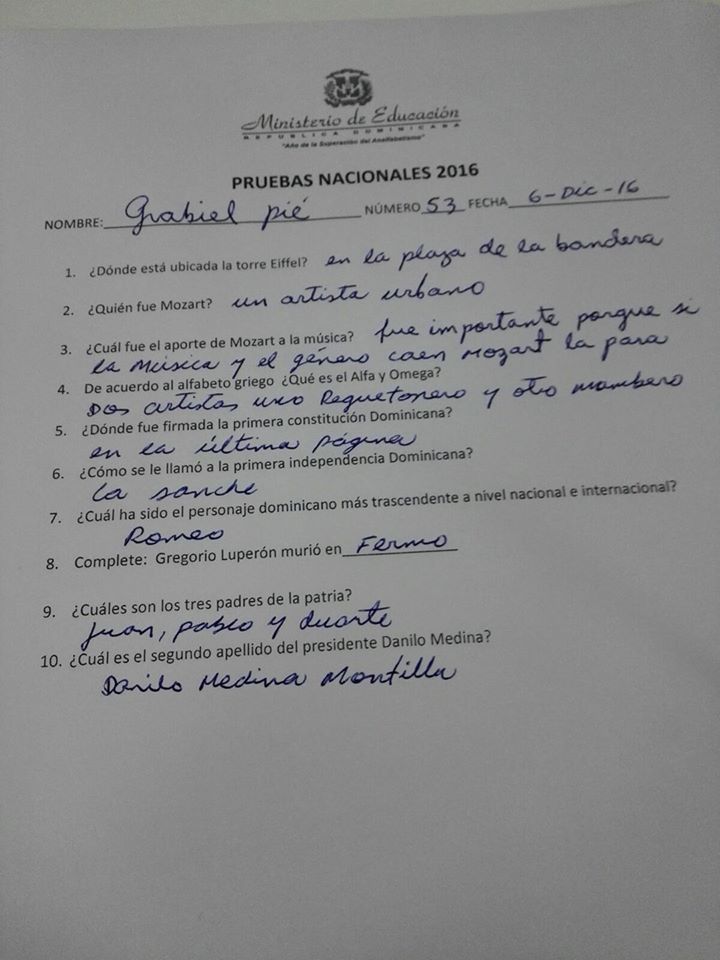 Ministerio de Educación
REPÚBLICA DOMINICANA
"Año de la Superación del Analfabetismo"
PRUEBAS NACIONALES 2016
NOMBRE: Grabiel pié NÚMERO 53 FECHA 6-Dic-16
1. ¿Dónde está ubicada la torre Eiffel? en la plaza de la bandera
2. ¿Quién fue Mozart? un artista urbano
3. ¿Cuál fue el aporte de Mozart a la música? fue importante porque si
la música y el género caen Mozart la para
4. De acuerdo al alfabeto griego ¿Qué es el Alfa y Omega?
Dos artistas uno Reguetonero y otro mambero
5. ¿Dónde fue firmada la primera constitución Dominicana?
en la última página
6. ¿Cómo se le llamó a la primera independencia Dominicana?
la sanche
7. ¿Cuál ha sido el personaje dominicano más trascendente a nivel nacional e internacional?
Romeo
8. Complete: Gregorio Luperón murió en Fermo
9. ¿Cuáles son los tres padres de la patria?
Juan, pablo y duarte
10. ¿Cuál es el segundo apellido del presidente Danilo Medina?
Danilo Medina Montilla